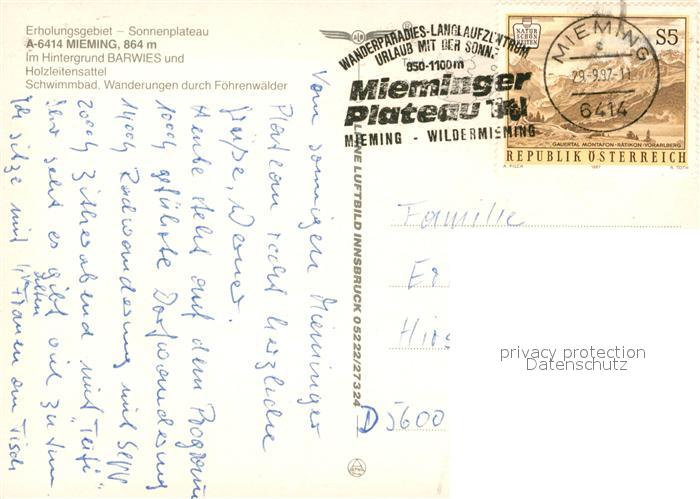 Erholungsgebiet – Sonnenplateau
A-6414 MIEMING, 864 m
Im Hintergrund BARWIES und
Holzleitensattel
Schwimmbad, Wanderungen durch Föhrenwälder
WANDERPARADIES-LANGLAUFZENTRUM
URLAUB MIT DER SONNE
850-1100m
Mieminger
Plateau
MIEMING - WILDERMIEMING
NATUR
SCHÖN
HEITEN
S5
MIEMING
29.-9.92-11
6414
GAUERTAL MONTAFON · RÄTIKON · VORARLBERG
REPUBLIK ÖSTERREICH
A. PILCH 1987
LUFTBILD INNSBRUCK 05222/27324
Vom sonnigen Mieminger
Plateau recht herzliche
Grüße, Werner.
Heute steht auf dem Programm
1000h geführte Dorfwanderung
1400h Radwanderung mit Sepp
2000h Zitherabend mit "Teifi"
Ihr seht es gibt viel zu tun.
Ich sitze mit Frauen am Tisch
Familie
D 5600
privacy protection
Datenschutz